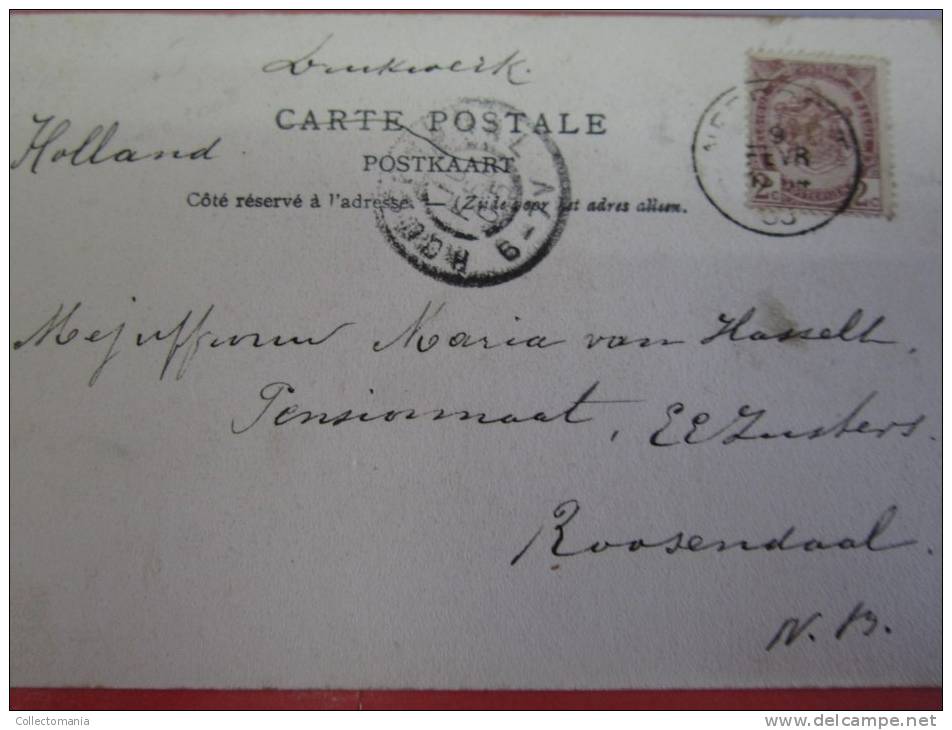 Drukwerk.
Holland
CARTE POSTALE
POSTKAART
Côté réservé à l'adresse. — Zijde voor het adres alleen.
2c 2c
6-7V
Mejuffrouw Maria van Hasselt,
Pensionnaat, EE Zusters.
Roosendaal.
N. B.
Collectomania
www.delcampe.net